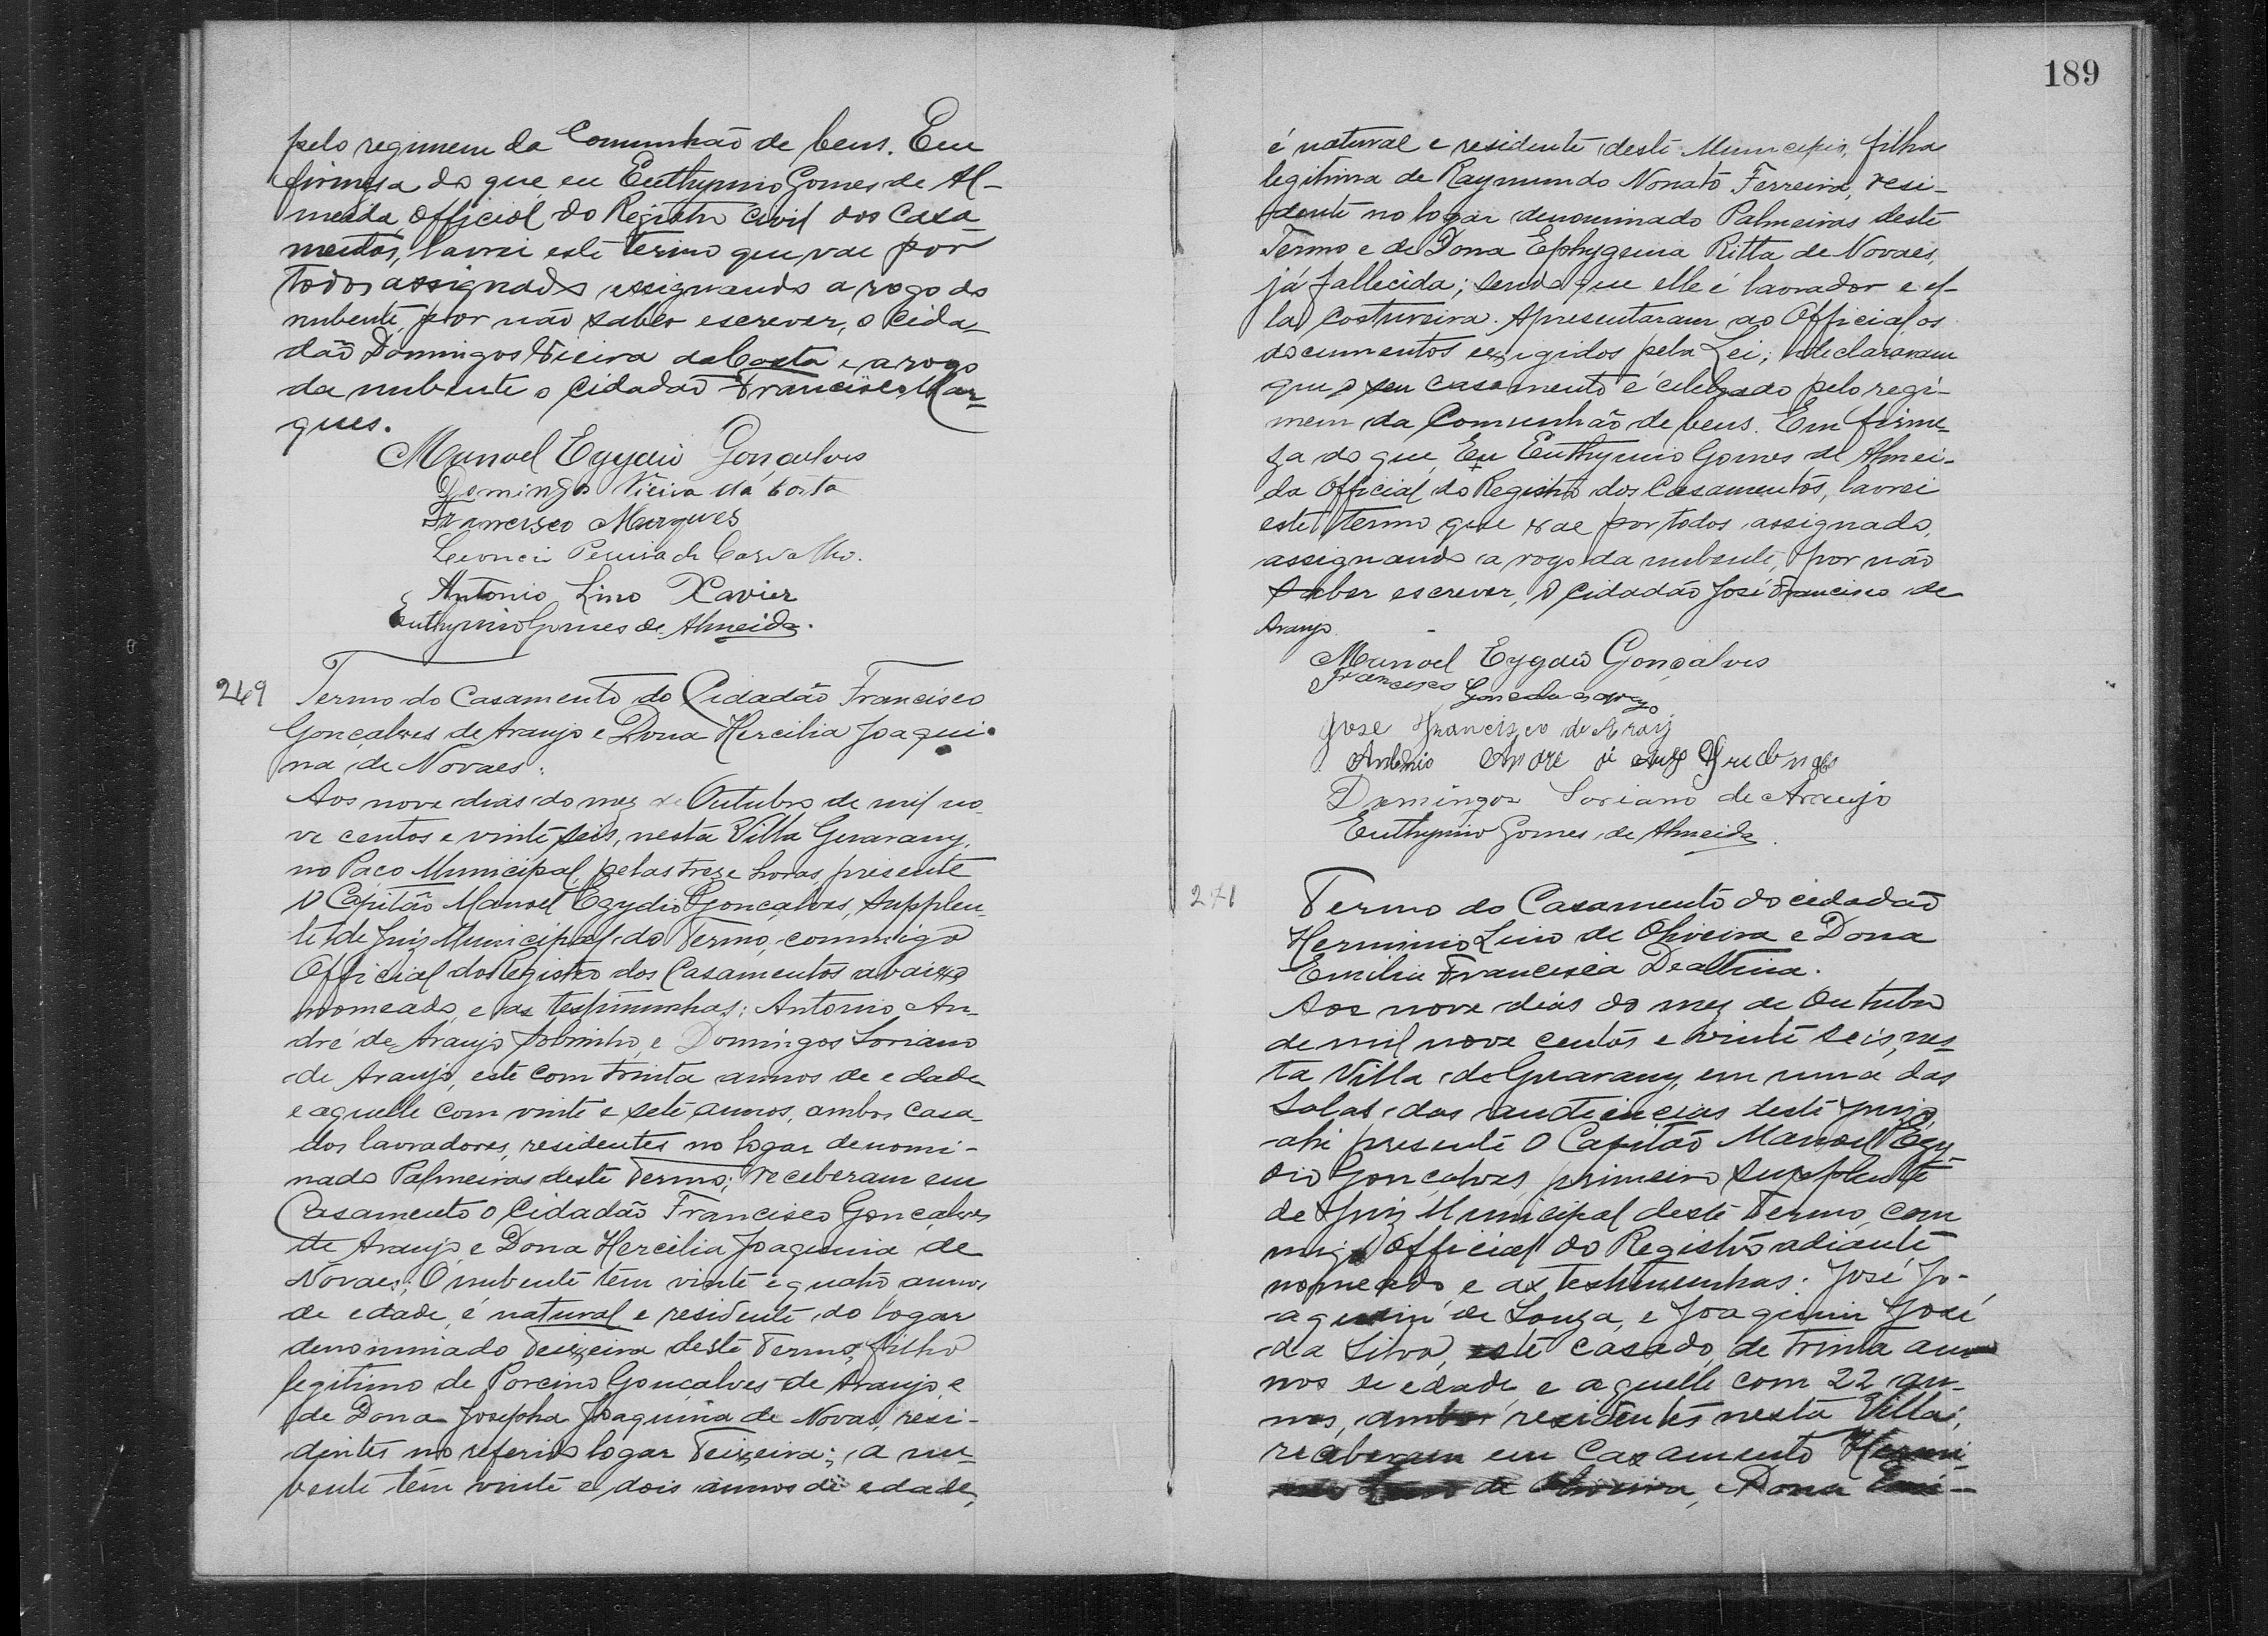 pelo regimem da Comunhão de bens. Em
firmesa do que eu Euthymio Gomes de Al-
meida, Official do Registro Civil dos Casa-
mentos, lavrei este termo que vae por
todos assignado assignando a rogo do
nubente, por não saber escrever, o cida-
dão Domingos Vieira da Costa e a rogo
da nubente o cidadão Francisco Mar-
ques.
Manoel Egydio Gonçalves
Domingo Vieira da Costa
Francisco Marques
Leoncio Pereira de Carvalho.
Antonio Lino Xavier
Euthymio Gomes de Almeida.
249
Termo do Casamento do Cidadão Francisco
Gonçalves de Araujo e Dona Hercilia Joaqui-
na de Novaes:
Aos nove dias do mez de Outubro de mil no-
ve centos e vinte seis, nesta Villa Guarany,
no Paço Municipal, pelas treze horas, presente
O Capitão Manoel Egydio Gonçalves, Supplen-
te de Juiz Municipal do Termo, commigo
Official do Registro dos Casamentos abaixo
nomeado, e as testimunhas: Antonio An-
dré de Araujo Sobrinho, e Domingos Soriano
de Araujo, este com trinta annos de edade
e aquelle com vinte e sete annos, ambos casa-
dos lavradores, residentes no logar denomi-
nado Palmeiras deste Termo; receberam em
Casamento o Cidadão Francisco Gonçalves
de Araujo, e Dona Hercilia Joaquina de
Novaes; O nubente tem vinte e quatro annos
de edade, é natural e residente do logar
denominado Teixeira deste Termo, filho
legitimo de Porcino Gonçalves de Araujo, e
de Dona Josepha Joaquina de Novas, resi-
dentes no referido logar Teixeira; a nu-
bente tem vinte e dois annos de edade,
189
é natural e residente deste Municipio, filha
legitima de Raymundo Nonato Ferreira, resi-
dente no logar denominado Palmeiras deste
Termo e de Dona Ephygenia Ritta de Novaes,
já fallecida; sendo que elle é lavrador e el-
la costureira. Apresentaram ao Official os
documentos exigidos pela Lei; declararam
que o seu casamento é celebrado pelo regi-
mem da Comunhão de bens. Em firme-
za do que, Eu Euthymio Gomes de Almei-
da Official do Registro dos Casamentos, lavrei
este termo que vae por todos assignado,
assignando a rogo da nubente, por não
saber escrever, o cidadão José Francisco de
Araujo.
Manoel Egydio Gonçalves
Francisco
Jose Francisco de
Antonio Andre
Domingos Soriano de Araujo
Euthymio Gomes de Almeida.
Termo do Casamento do cidadão
Herminio Lino de Oliveira e Dona
Emilia Francisca
Aos nove dias do mez de Outubro
de mil nove centos e vinte seis, nes-
ta Villa de Guarany, em uma das
Salas das audiencias deste juizo,
ahi presente O Capitão Manoel Egy-
dio Gonçalves primeiro supplente
de Juiz Municipal deste Termo, com
migo Official do Registro adiante
nomeado e as testimunhas: José Jo-
aquim de Souza, e Joaquim José
da Silva, este casado, de trinta an
nos de edade e aquelle com 22 an-
nos, ambos residentes nesta Villa,
receberam em Casamento Hermi-
de Oliveira, Dona Emi-